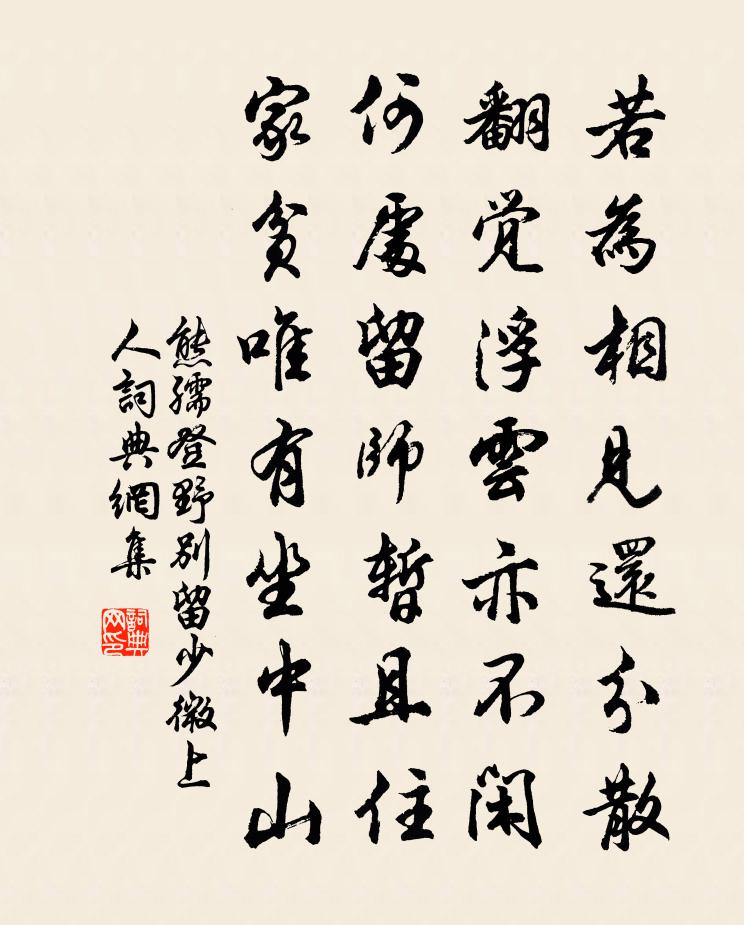 若為相見還分散
翻覚浮雲亦不閑
何處留師暫且住
家貧唯有坐中山
熊孺登野別留少微上
人詞典網集
詞典
网印